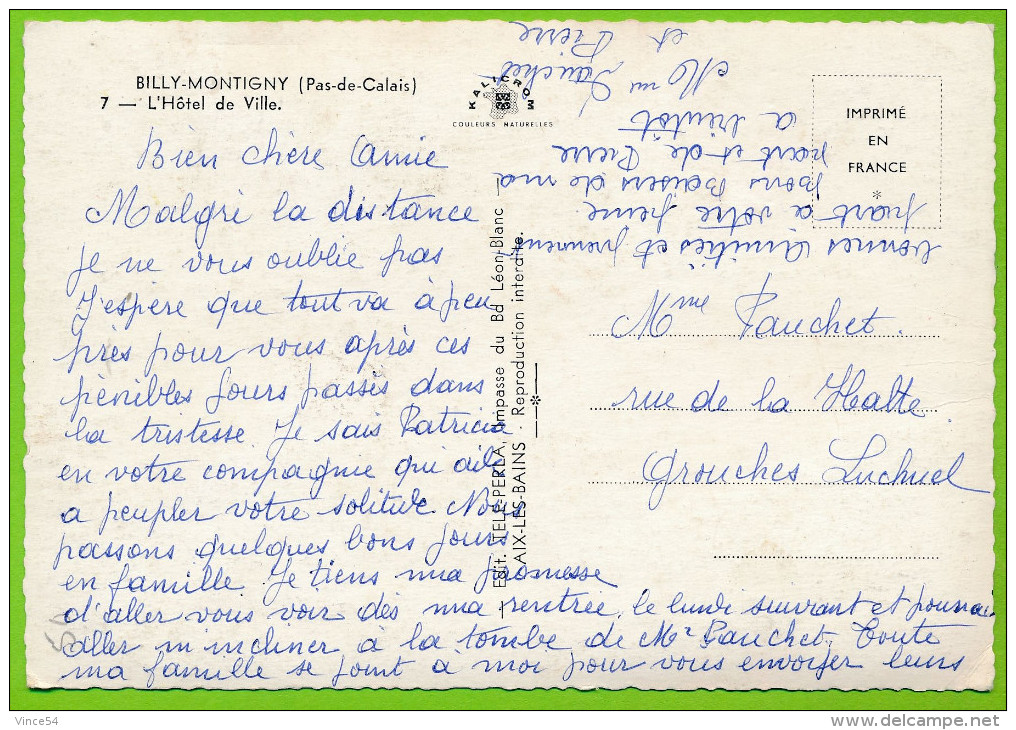 BILLY-MONTIGNY (Pas-de-Calais)
7 — L'Hôtel de Ville.
KALICROM
COULEURS NATURELLES
IMPRIMÉ
EN
FRANCE
*
Bien chère Amie
Malgré la distance
je ne vous oublie pas
J'espère que tout va à peu
près pour vous après ces
pénibles jours passés dans
la tristesse. Je sais Patricia
en votre compagnie qui aide
a peupler votre solitude. Nous
passons quelques bons jours
en famille. Je tiens ma promesse
d'aller vous voir dès ma rentrée, le lundi suivant et pouvoir
aller m'incliner à la tombe de Mr Fauchet, Toute
ma famille se joint a moi pour vous envoyer leurs
bonnes Amitiés et prennent
part a votre peine.
bons Baisers de ma
part et de Pierre
a bientôt
Mme Fauchet
et Pierre
Edit. TELE-PERLA, Impasse du Bd Léon-Blanc —
AIX-LES-BAINS · Reproduction interdite.
Mme Fauchet.
rue de la Halte
Grouches Luchuel
Vince54
delcampe.net